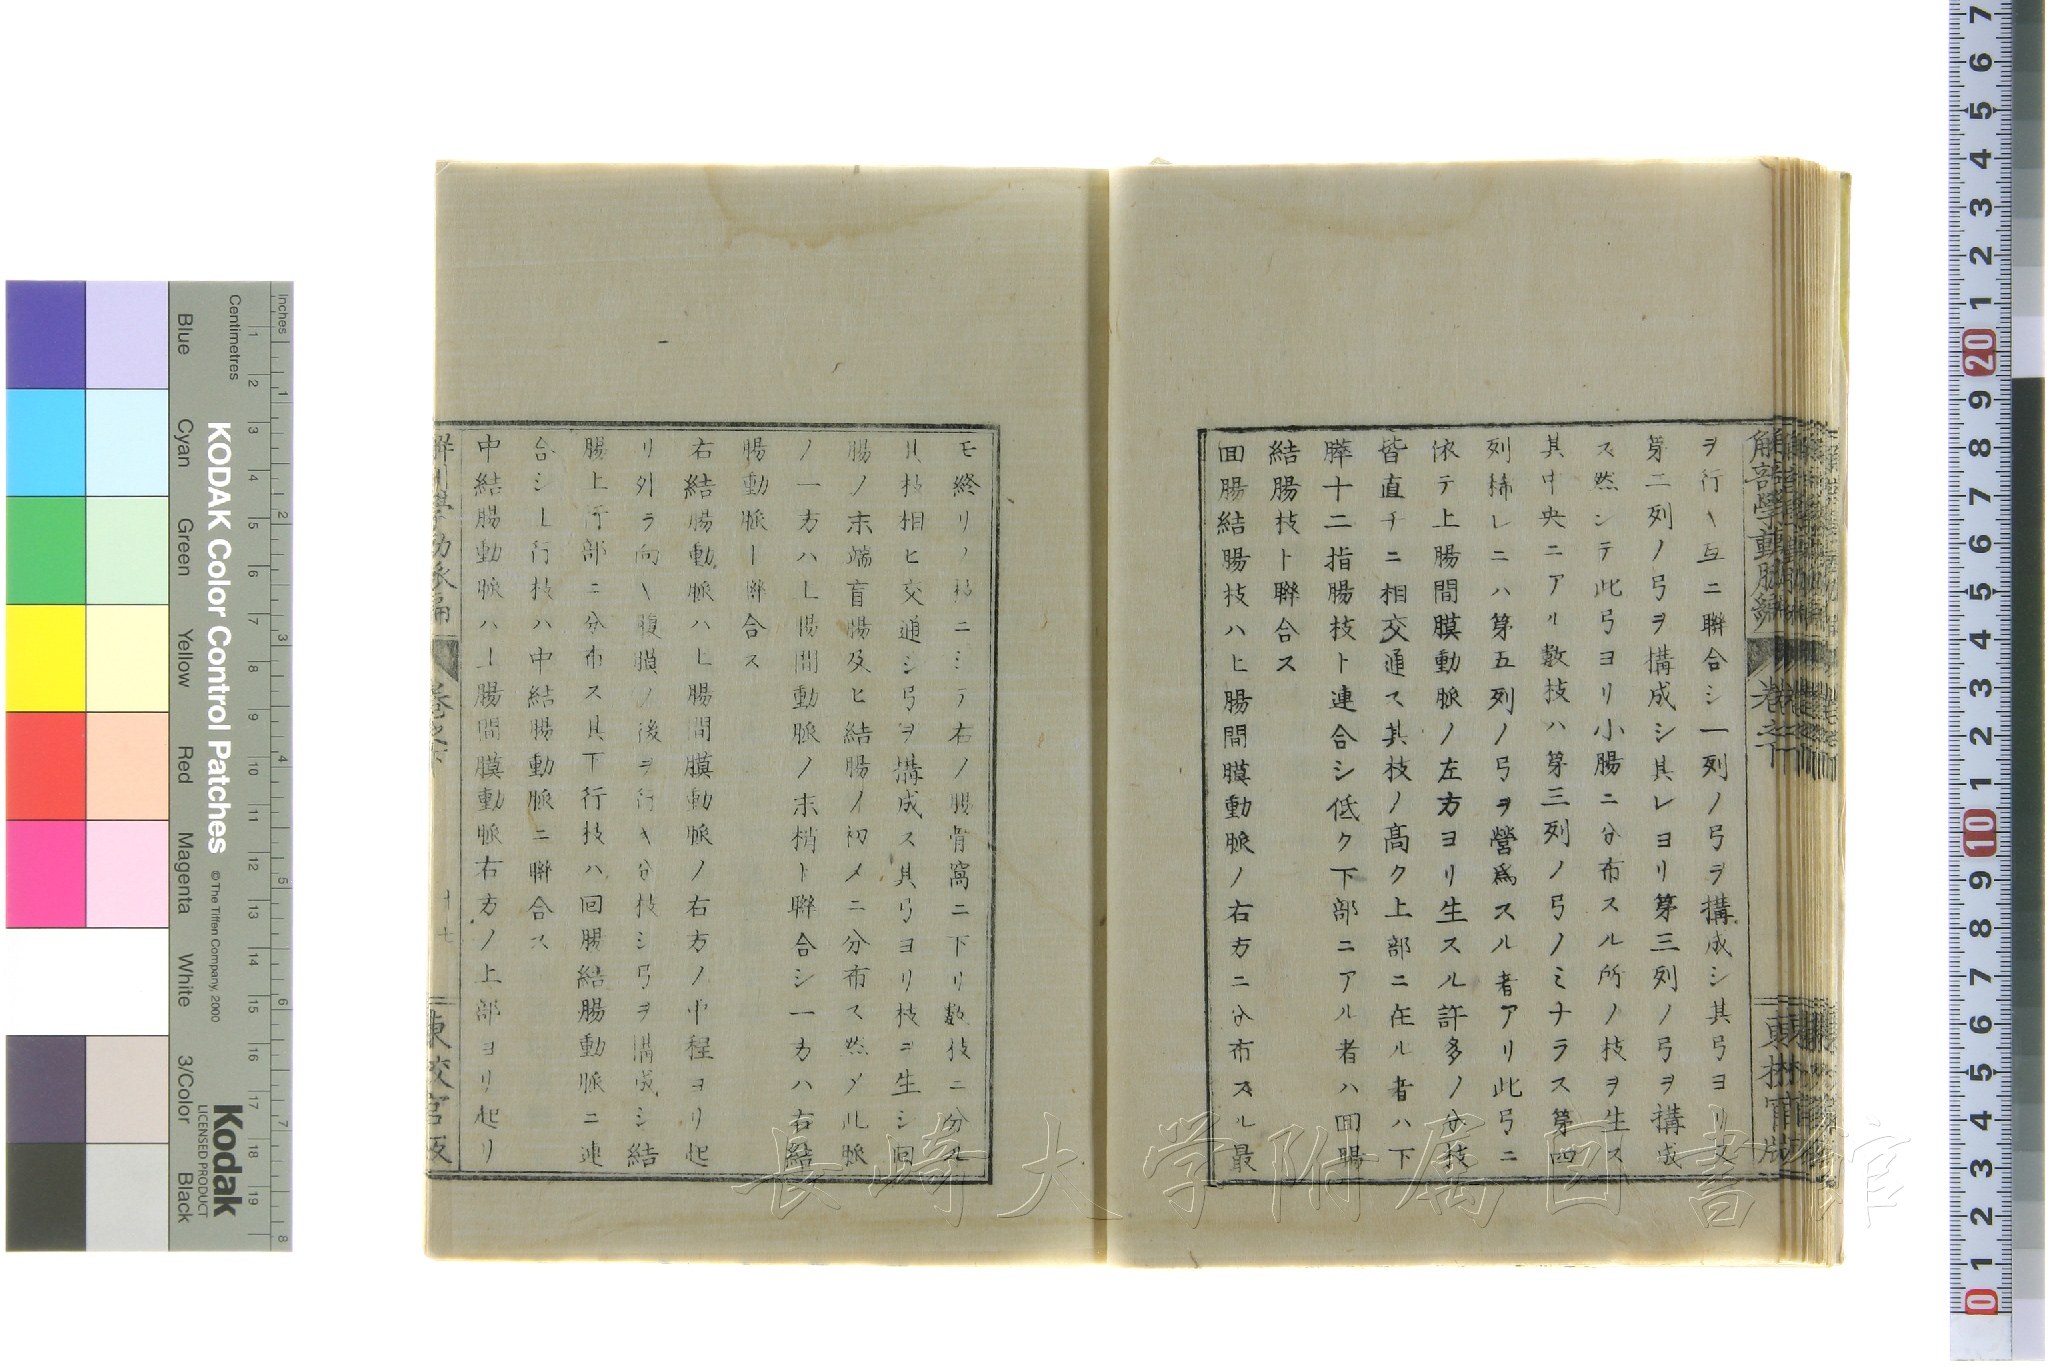 ヲ行キ互ニ聯合シ一列ノ弓ヲ搆成シ其弓ヨリ又
第二列ノ弓ヲ搆成シ其レヨリ第三列ノ弓ヲ搆成
ス然シテ此弓ヨリ小腸ニ分布スル所ノ枝ヲ生ス
其中央ニアル數枝ハ第三列ノ弓ノミナラス第四
列稀レニハ第五列ノ弓ヲ營爲スル者アリ此弓ニ
依テ上腸間膜動脈ノ左方ヨリ生スル許多ノ分枝
皆直チニ相交通ス其枝ノ高ク上部ニ在ル者ハ下
膵十二指腸枝ト連合シ低ク下部ニアル者ハ回腸
結腸枝ト聯合ス
回腸結腸枝ハ上腸間膜動脈ノ右方ニ分布スル最
解剖學動脈編 卷之下
モ終リノ枝ニシテ右ノ腸骨窩ニ下リ數枝ニ分レ
其枝相ヒ交通シ弓ヲ搆成ス其弓ヨリ枝ヲ生シ回
腸ノ末端盲腸及ヒ結腸ノ初メニ分布ス然メ此脈
ノ一方ハ上腸間動脈ノ末梢ト聯合シ一方ハ右結
腸動脈ト聯合ス
右結腸動脈ハ上腸間膜動脈ノ右方ノ中程ヨリ起
リ外ラ向キ腹膜ノ後ヲ行キ分枝シ弓ヲ搆成シ結
腸上行部ニ分布ス其下行枝ハ回腸結腸動脈ニ連
合シ上行枝ハ中結腸動脈ニ聯合ス
中結腸動脈ハ上腸間膜動脈右方ノ上部ヨリ起リ
解剖學動脈編 卷之下 十七 東校官版
長崎大学附属図書館
KODAK Color Control Patches
© The Tiffen Company, 2000
Kodak
LICENSED PRODUCT
Inches
Centimetres
Blue Cyan Green Yellow Red Magenta White 3/Color Black